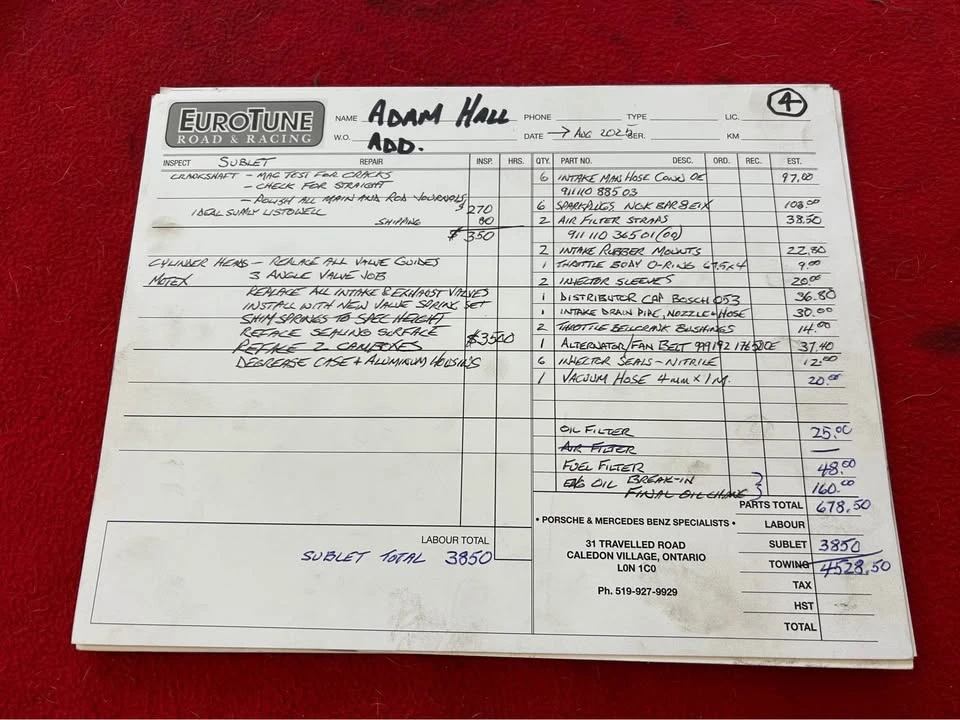 EUROTUNE
ROAD & RACING
NAME ADAM HALL PHONE TYPE LIC. 4
W.O. ADD. DATE → AUG 2025 SER. KM
INSPECT SUBLET REPAIR INSP. HRS. QTY. PART NO. DESC. ORD. REC. EST.
CRANKSHAFT - MAG TEST FOR CRACKS
- CHECK FOR STRAIGHT
- POLISH ALL MAIN AND ROD JOURNALS
IDEAL SUPPLY LISTOWELL $270
SHIPPING 80
$350
CYLINDER HEADS - REPLACE ALL VALVE GUIDES
MOTEX 3 ANGLE VALVE JOB
REPLACE ALL INTAKE & EXHAUST VALVES
INSTALL WITH NEW VALVE SPRING SET
SHIM SPRINGS TO SPEC HEIGHT
REFACE SEALING SURFACE
REFACE 2 CAMBOXES $3500
DEGREASE CASE + ALUMINUM HOUSINGS
LABOUR TOTAL
SUBLET TOTAL 3850
6 INTAKE MAN HOSE CONN OE 97.00
911 110 885 03
6 SPARKPLUGS NGK BPR8EIX 108.00
2 AIR FILTER STRAPS 38.50
911 110 365 01 (00)
2 INTAKE RUBBER MOUNTS 22.80
1 THROTTLE BODY O-RING 67.5x4 9.00
2 INJECTOR SLEEVES 20.00
1 DISTRIBUTOR CAP BOSCH 053 36.80
1 INTAKE DRAIN PIPE, NOZZLE + HOSE 30.00
2 THROTTLE BELLCRANK BUSHINGS 14.00
1 ALTERNATOR/FAN BELT 999 192 176 50 OE 37.40
6 INJECTOR SEALS - NITRILE 12.00
1 VACUUM HOSE 4mm x 1M. 20.00
OIL FILTER 25.00
AIR FILTER —
FUEL FILTER 48.00
ENG OIL BREAK-IN
FINAL OIL CHANGE 160.00
PARTS TOTAL 678.50
• PORSCHE & MERCEDES BENZ SPECIALISTS •
31 TRAVELLED ROAD
CALEDON VILLAGE, ONTARIO
L0N 1C0
Ph. 519-927-9929
LABOUR
SUBLET 3850
TOWING 4528.50
TAX
HST
TOTAL